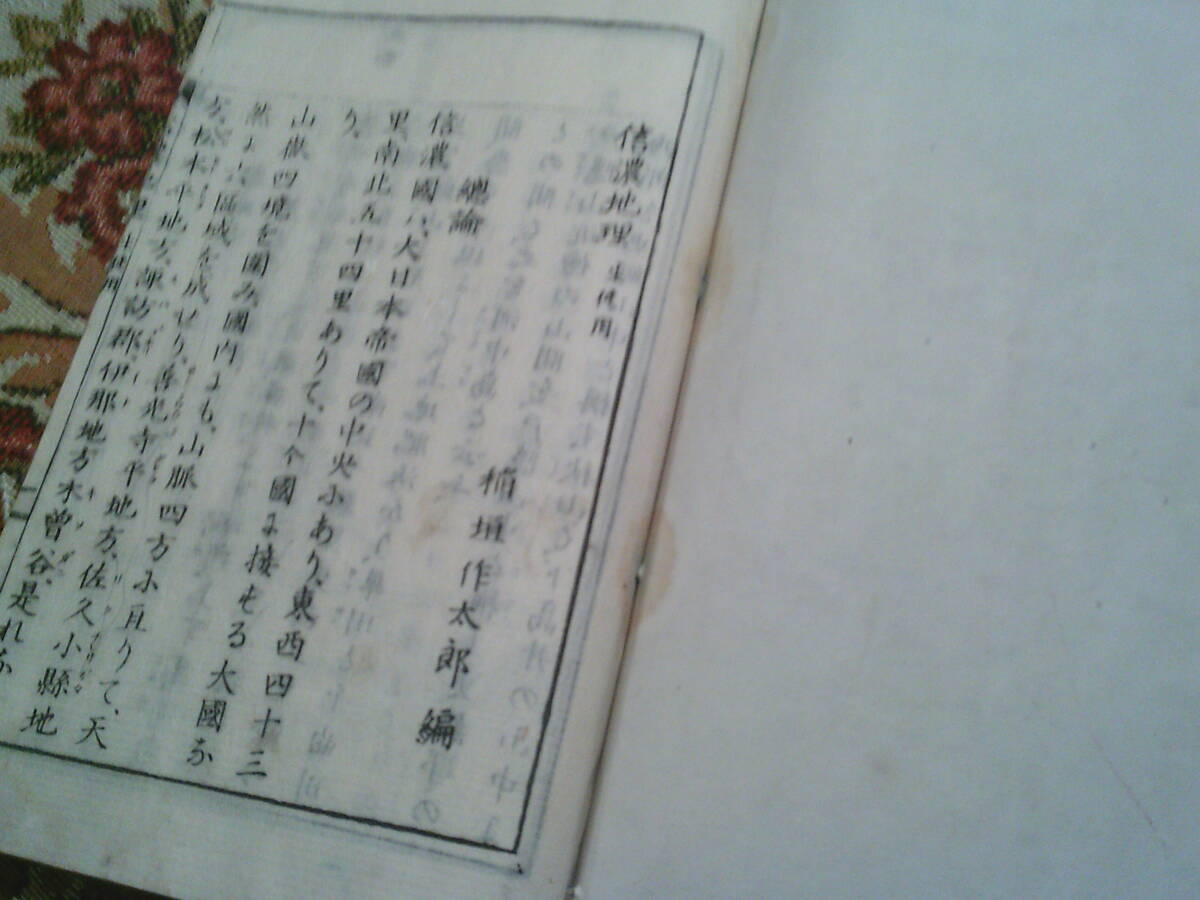 信濃地理 生徒用
稲垣作太郎編
總論
信濃國ハ、大日本帝國の中央ふあり、東西四十三
里南北五十四里ありて、十个國よ接せる大國な
り、
山嶽四境を圍み國内よも、山脈四方ふ亘りて、天
然よ六區域を成せり、善光寺平地方、佐久小縣地
方、松本平地方、諏訪郡、伊那地方木曽谷、是れな